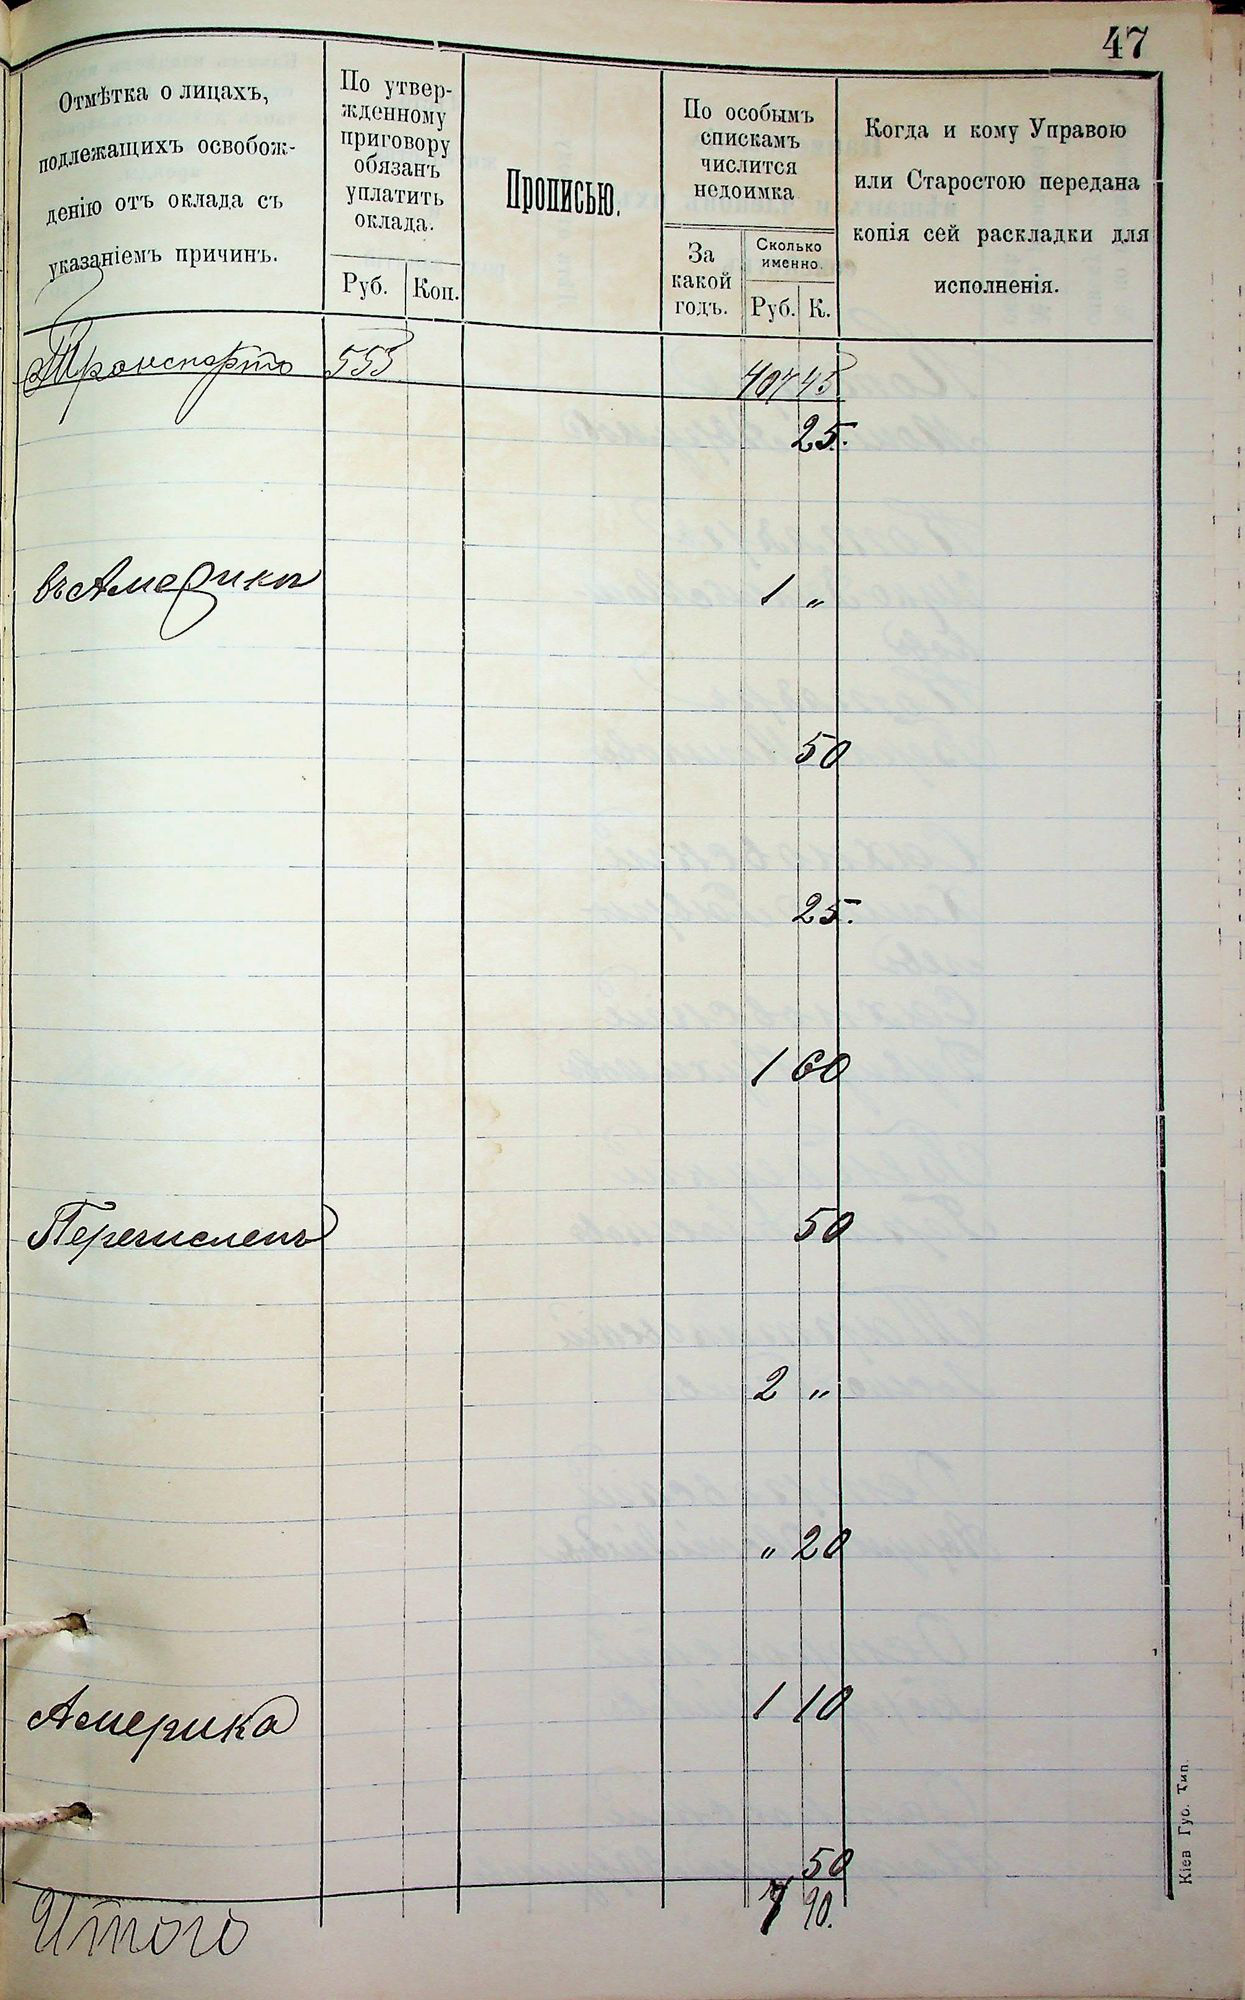 47
Отмѣтка о лицахъ,
подлежащихъ освобож-
денію отъ оклада съ
указаніемъ причинъ.
По утвер-
жденному
приговору
обязанъ
уплатить
оклада.
Руб. Коп.
Прописью.
По особымъ
спискамъ
числится
недоимка
За
какой
годъ.
Сколько
именно.
Руб. К.
Когда и кому Управою
или Старостою передана
копія сей раскладки для
исполненія.
Транспортъ 553 407 45
25.
въ Америкѣ 1 „
50
25.
1 60
Перечисленъ 50
2 „
„ 20
Америка 1 10
50
Итого 7 90.
Кіев Губ. Тип.